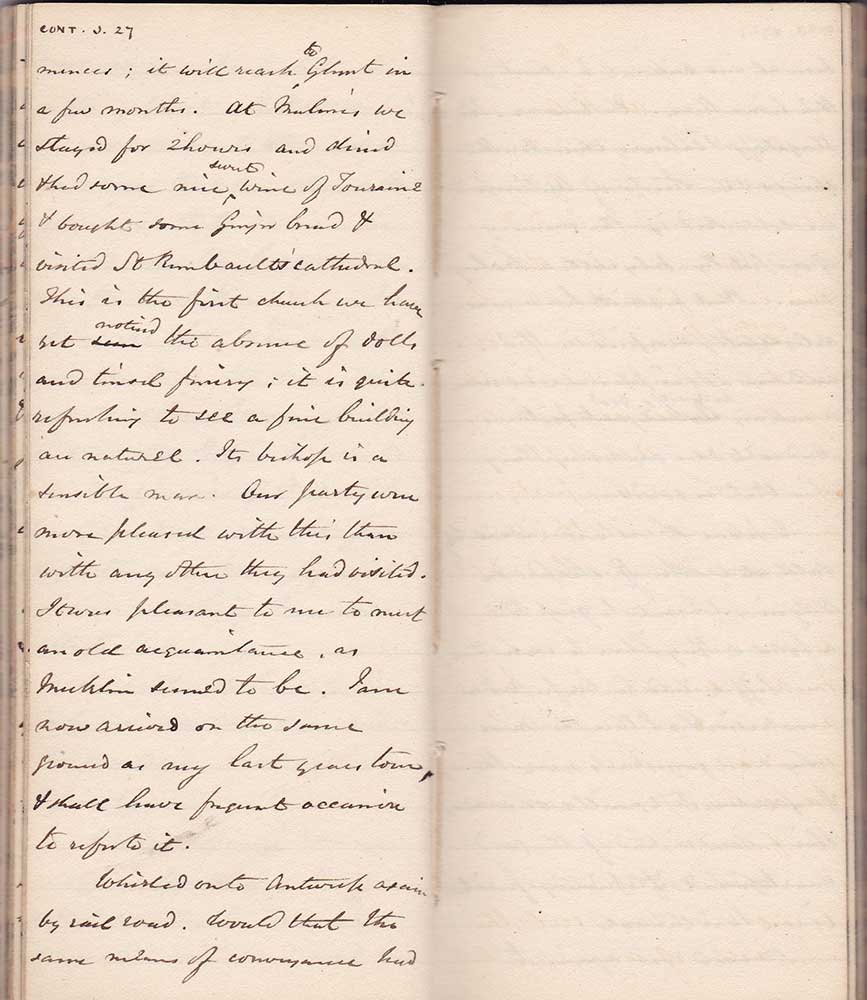 CONT. J. 27
to
mences; it will reach Ghent in
a few months. At Malines we
stayed for 2 hours and dined
sweet
& had some nice wine of Touraine
& bought some Ginjer bread &
visited St Rumbault's cathedral.
This is the first church we have
noticed
yet seen the absence of dolls
and tinsel finery; it is quite
refreshing to see a fine building
au naturel. Its bishop is a
sensible man. Our party were
more pleased with this than
with any other they had visited.
It was pleasant to me to meet
an old acquaintance, as
Mechlin seemed to be. I am
now arrived on the same
ground as my last years tour,
& shall have frequent occasion
to refer to it.
Whirled on to Antwerp again
by rail road. Would that the
same means of conveyance had